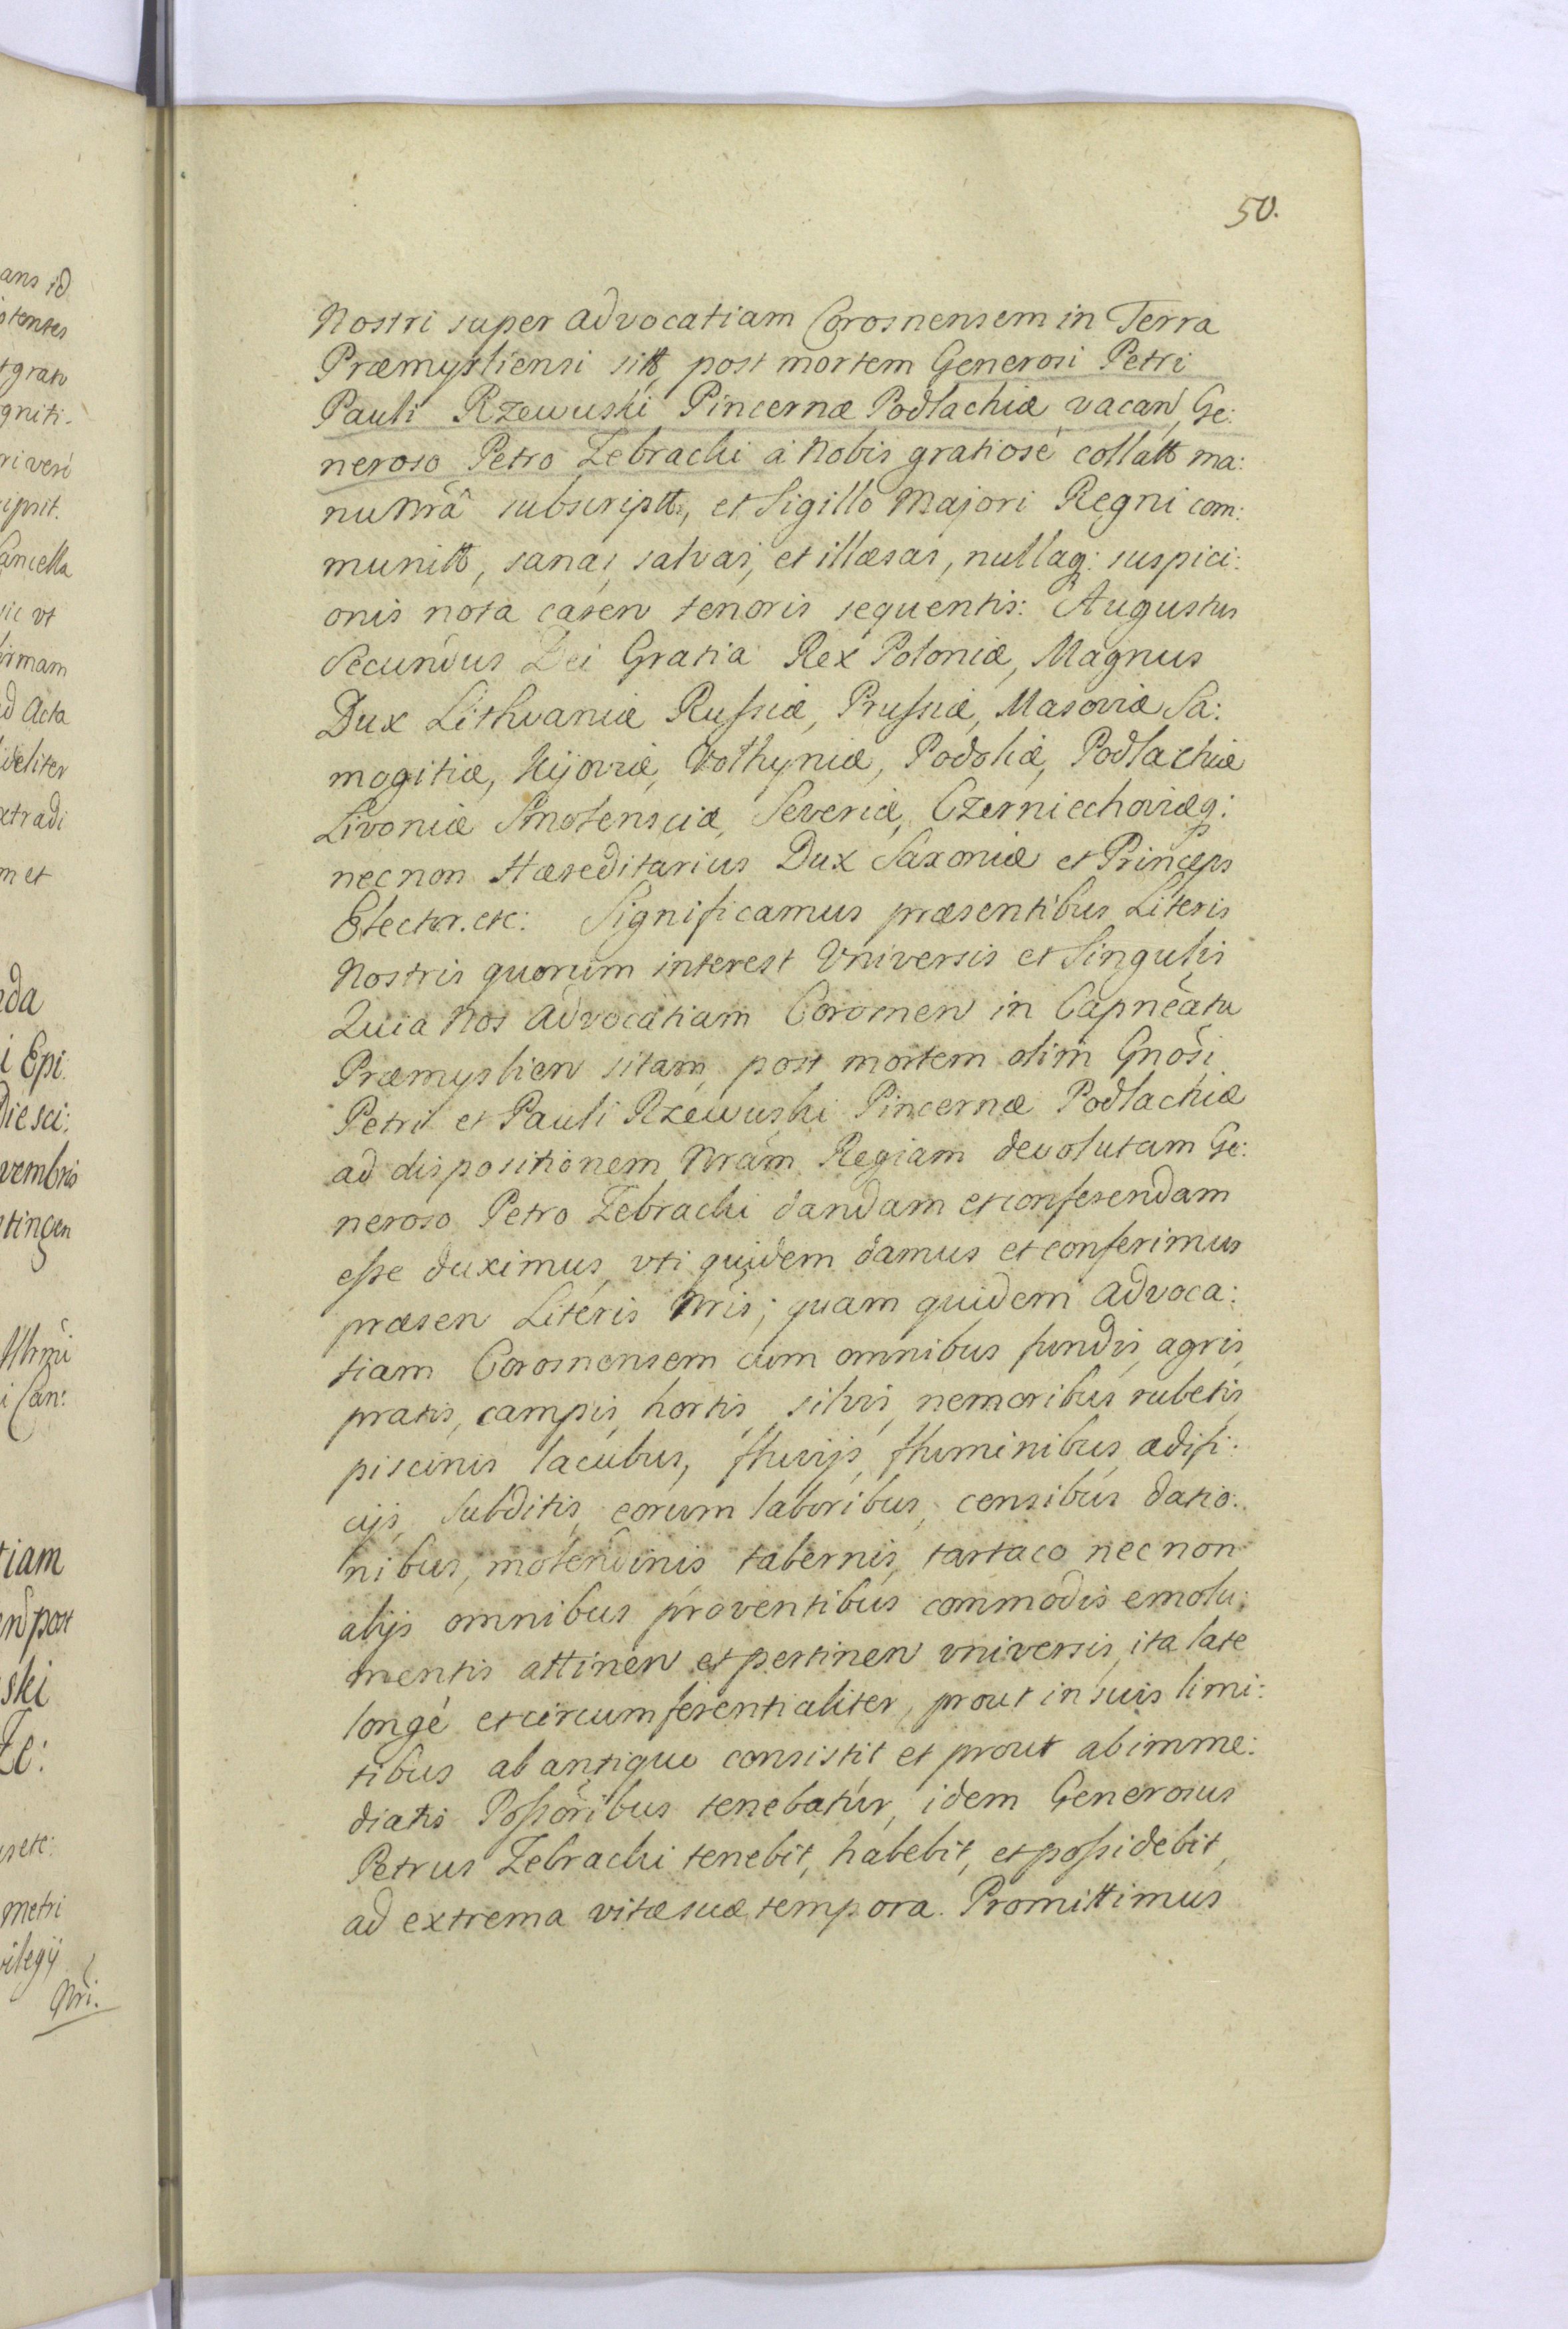 50.
Nostri super Advocatiam Corosnensem in Terra
Præmysliensi sitt, post mortem Generosi Petri
Pauli Rzewuski Pincernæ Podlachiæ vacan, Ge:
neroso Petro Zebracki à Nobis gratiosè collatt ma:
nu Nrâ subscriptt, et Sigillo Majori Regni com:
munitt, sanas, salvas, et illæsas, nullaq: suspici:
onis nota caren tenoris sequentis: Augustus
Secundus Dei Gratia Rex Poloniæ, Magnus
Dux Lithvaniæ Russiæ, Prussiæ, Masoviæ Sa:
mogitiæ, Kijoviæ, Volhyniæ, Podoliæ, Podlachiæ
Livoniæ Smolensciæ, Severiæ, Czerniechoviæq:
nec non Hæreditarius Dux Saxoniæ et Princeps
Elector. etc: Significamus præsentibus Literis
Nostris quorum interest Vniversis et Singulis
Quia Nos Advocatiam Corosnen in Capneatu
Præmyslien sitam, post mortem olim Gnosi
Petri et Pauli Rzewuski Pincernæ Podlachiæ
ad dispositionem Nram Regiam devolutam Ge:
neroso Petro Zebracki dandam et conferendam
esse duximus, vti quidem damus et conferimus
præsen Literis Nris; quam quidem Advoca:
tiam Corosnensem cum omnibus fundis, agris,
pratis, campis, hortis, silvis, nemoribus, rubetis,
piscinis lacubus, fluvijs, fluminibus, ædifi:
cijs, Subditis, eorum laboribus, censibus datio:
nibus, molendinis tabernis, tartaco nec non
alijs omnibus proventibus commodis emolu:
mentis attinen et pertinen vniversis, ita late
longè et circumferentialiter, prout in suis limi:
tibus ab antiquo consistit et prout ab imme:
diatis Possoribus tenebatur, idem Generosus
Petrus Zebracki tenebit, habebit, et possidebit,
ad extrema vitæ suæ tempora. Promittimus